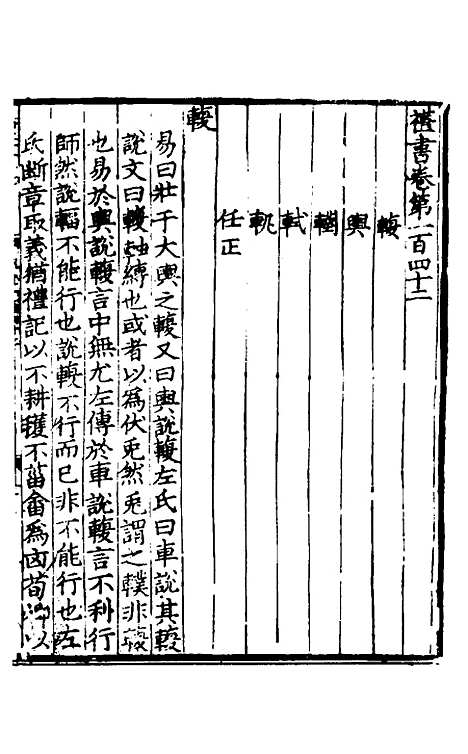 禮書卷第一百四十二
輹
輿
轛
軾
軓
任正
輹
易曰壯于大輿之輹又曰輿說輹左氏曰車說其輹
說文曰輹軸縛也或者以為伏兎然兎謂之轐非輹
也易於輿說輹言中無尤左傳於車說輹言不利行
師然說輻不能行也說輹不行而已非不能行也左
氏斷章取義猶禮記以不耕穫不菑畬為凶荀以